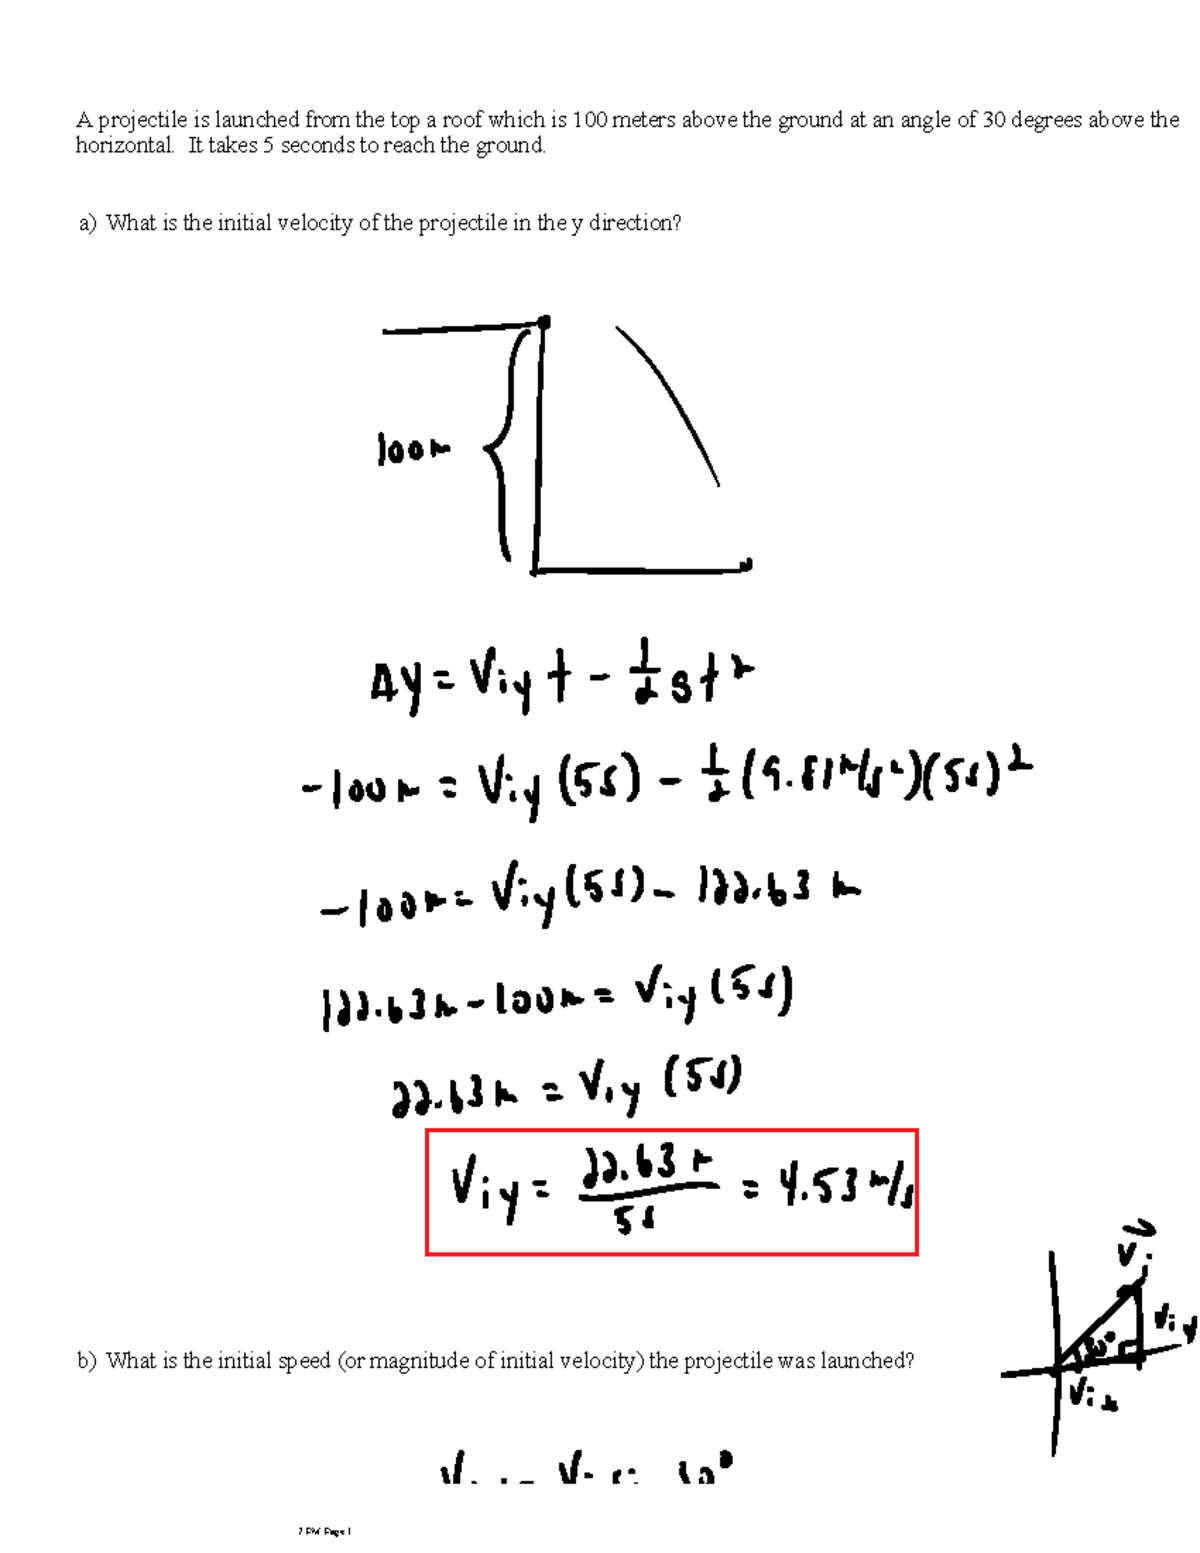 A projectile is launched from the top a roof which is 100 meters above the ground at an angle of 30 degrees above the
horizontal. It takes 5 seconds to reach the ground.
a) What is the initial velocity of the projectile in the y direction?
100m
Δy = Viy t - 1/2 g t²
-100m = Viy (5s) - 1/2 (9.81 m/s²)(5s)²
-100m = Viy (5s) - 122.63 m
122.63m - 100m = Viy (5s)
22.63m = Viy (5s)
Viy = 22.63 m / 5s = 4.53 m/s
Vi
Viy
30°
Vix
b) What is the initial speed (or magnitude of initial velocity) the projectile was launched?
Page 1